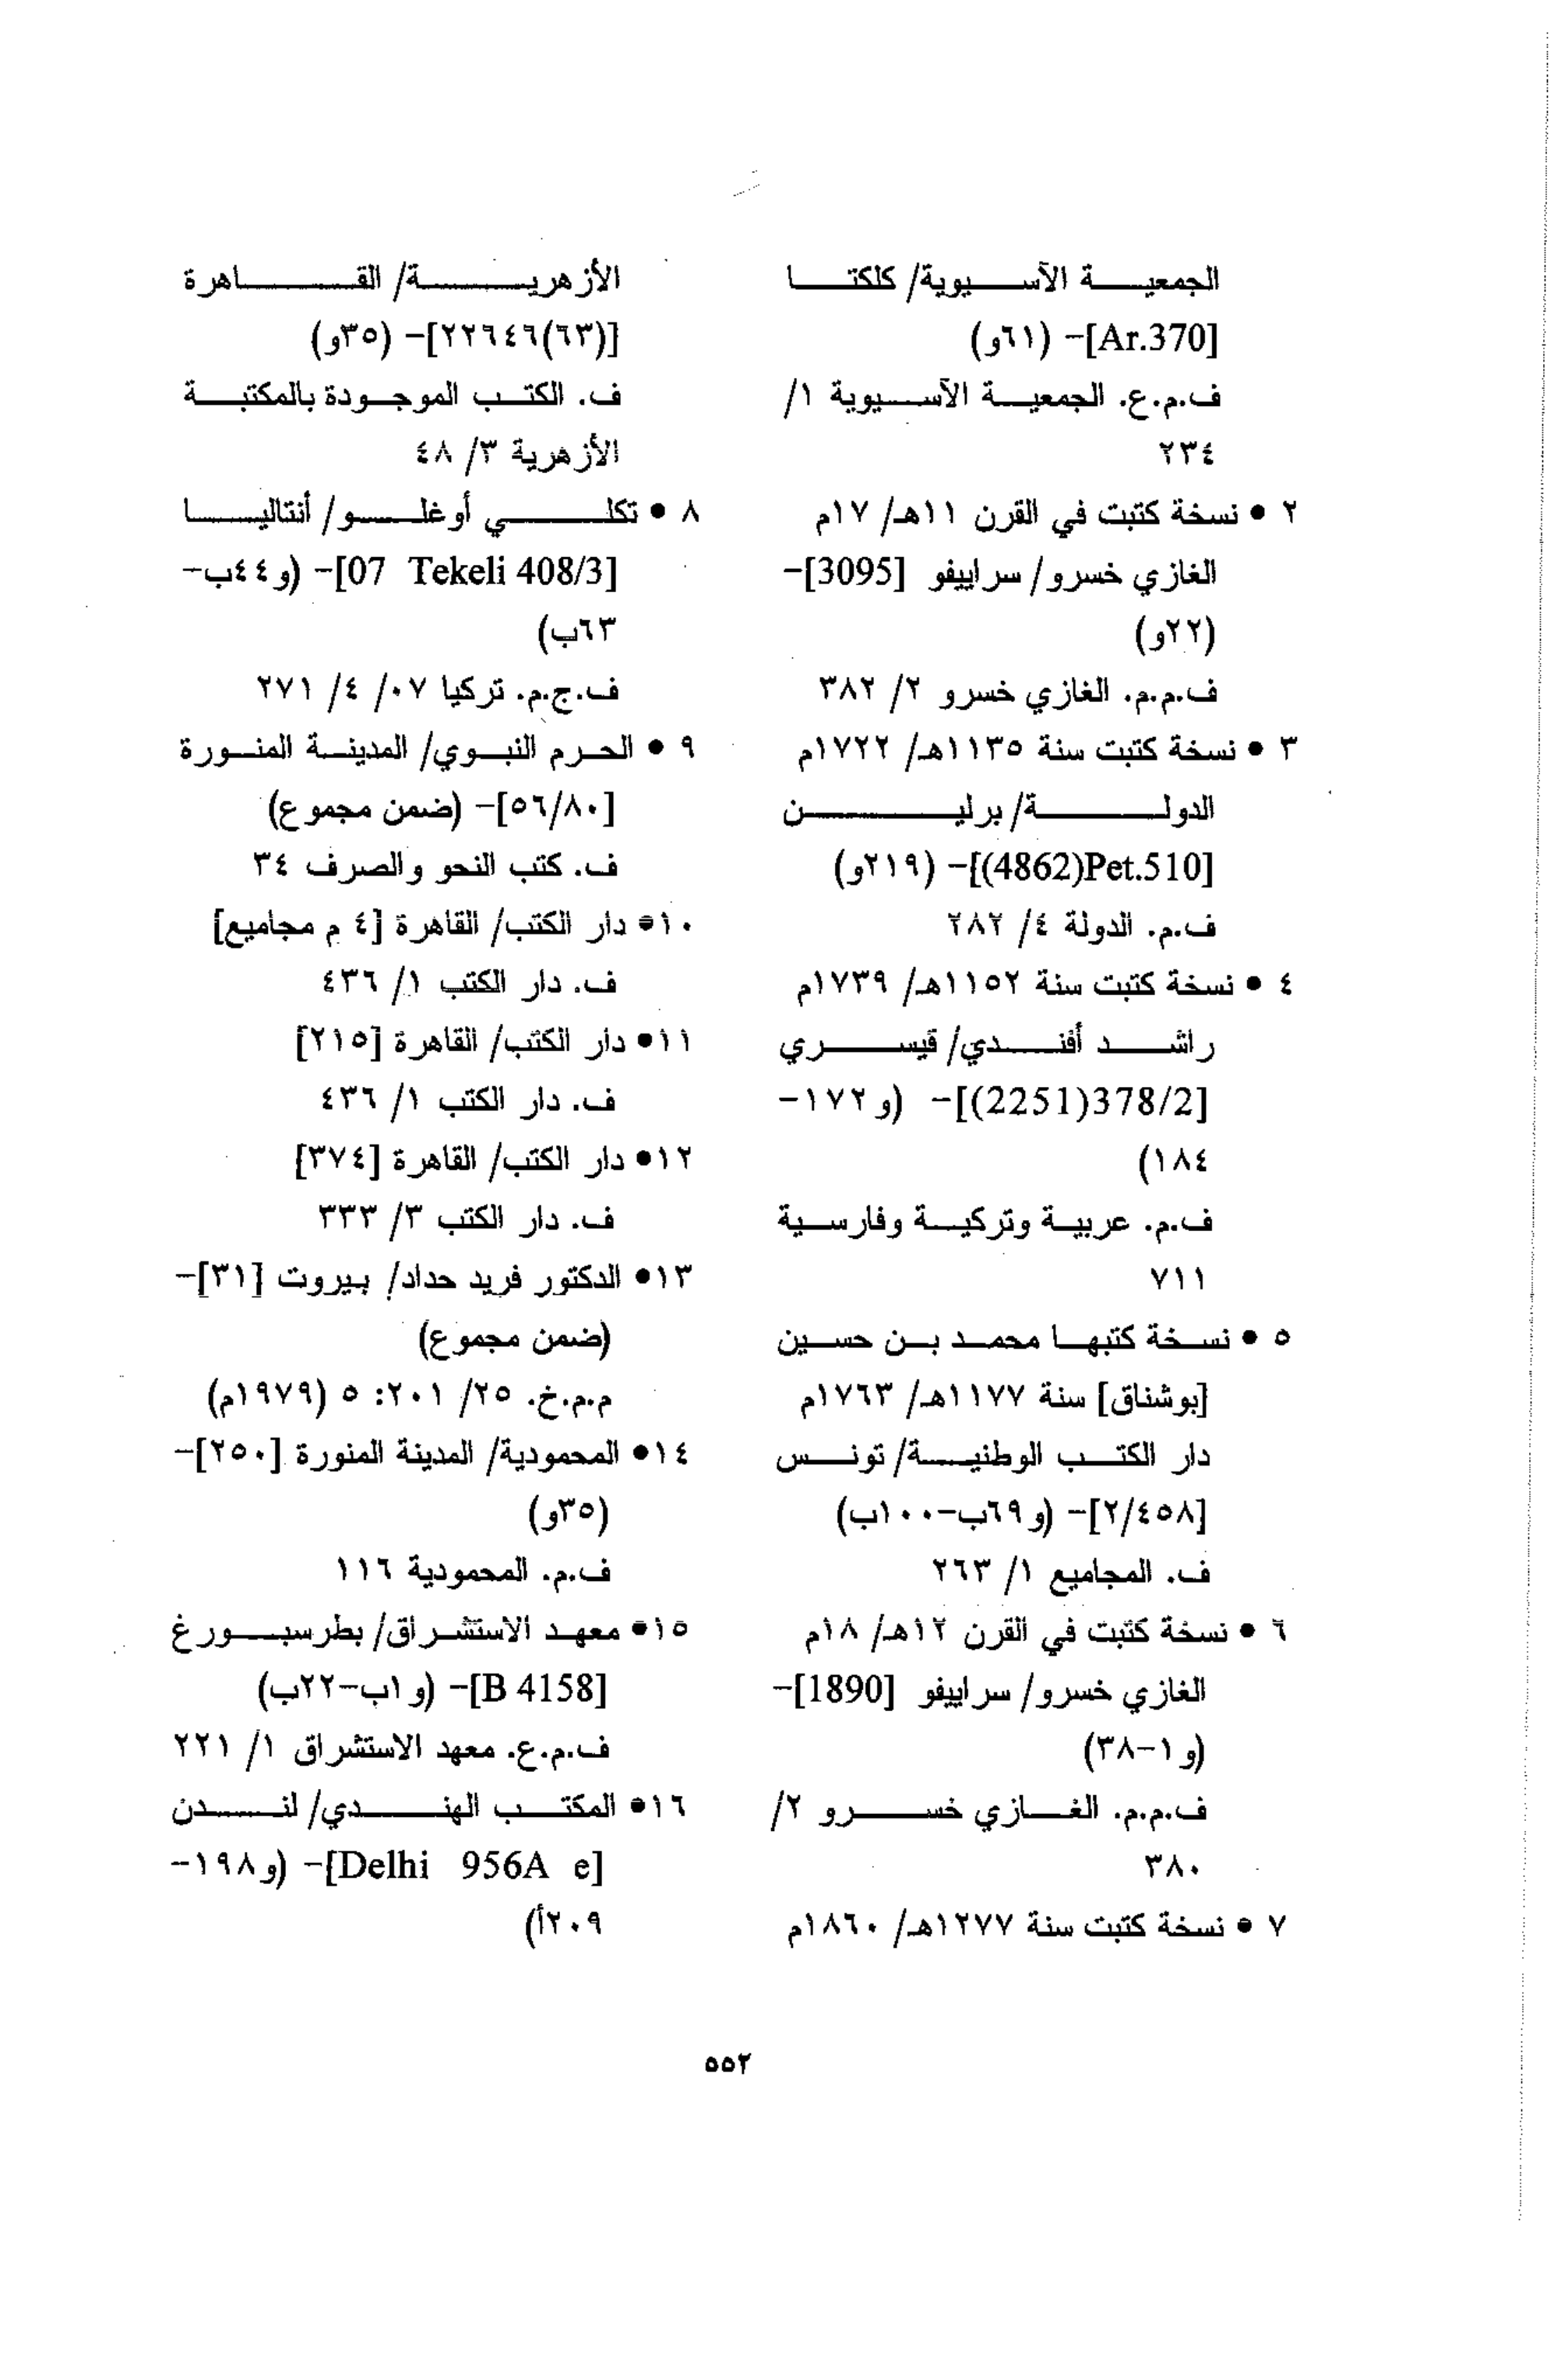 الجمعية الآسيوية/ كلكتا
[Ar.370]- (٦١و)
ف.م.ع. الجمعية الآسيوية ١/
٢٣٤
٢ • نسخة كتبت في القرن ١١هـ/ ١٧م
الغازي خسرو/ سراييفو [3095]-
(٢٢و)
ف.م.م. الغازي خسرو ٢/ ٣٨٢
٣ • نسخة كتبت سنة ١١٣٥هـ/ ١٧٢٢م
الدولة/ برلين
[Pet.510(4862)]- (٢١٩و)
ف.م. الدولة ٤/ ٢٨٢
٤ • نسخة كتبت سنة ١١٥٢هـ/ ١٧٣٩م
راشد أفندي/ قيسري
[378/2(2251)]- (و١٧٢-
١٨٤)
ف.م. عربية وتركية وفارسية
٧١١
٥ • نسخة كتبها محمد بن حسين
[بوشناق] سنة ١١٧٧هـ/ ١٧٦٣م
دار الكتب الوطنية/ تونس
[٢/٤٥٨]- (و٦٩ب-١٠٠ب)
ف. المجاميع ١/ ٢٦٣
٦ • نسخة كتبت في القرن ١٢هـ/ ١٨م
الغازي خسرو/ سراييفو [1890]-
(و١-٣٨)
ف.م.م. الغازي خسرو ٢/
٣٨٠
٧ • نسخة كتبت سنة ١٢٧٧هـ/ ١٨٦٠م
الأزهرية/ القاهرة
[(٦٣)٢٢٦٤٦]- (٣٥و)
ف. الكتب الموجودة بالمكتبة
الأزهرية ٣/ ٤٨
٨ • تكلي أوغلو/ أنتاليا
[07 Tekeli 408/3]- (و٤٤ب-
٦٣ب)
ف.ج.م. تركيا ٠٧/ ٤/ ٢٧١
٩ • الحرم النبوي/ المدينة المنورة
[٥٦/٨٠]- (ضمن مجموع)
ف. كتب النحو والصرف ٣٤
١٠• دار الكتب/ القاهرة [٤ م مجاميع]
ف. دار الكتب ١/ ٤٣٦
١١• دار الكتب/ القاهرة [٢١٥]
ف. دار الكتب ١/ ٤٣٦
١٢• دار الكتب/ القاهرة [٣٧٤]
ف. دار الكتب ٣/ ٣٣٣
١٣• الدكتور فريد حداد/ بيروت [٣١]-
(ضمن مجموع)
م.م.خ. ٢٥/ ٢٠١: ٥ (١٩٧٩م)
١٤• المحمودية/ المدينة المنورة [٢٥٠]-
(٣٥و)
ف.م. المحمودية ١١٦
١٥• معهد الاستشراق/ بطرسبورغ
[B 4158]- (و١ب-٢٢ب)
ف.م.ع. معهد الاستشراق ١/ ٢٢١
١٦• المكتب الهندي/ لندن
[Delhi 956A e]- (و١٩٨-
٢٠٩أ)
٥٥٢